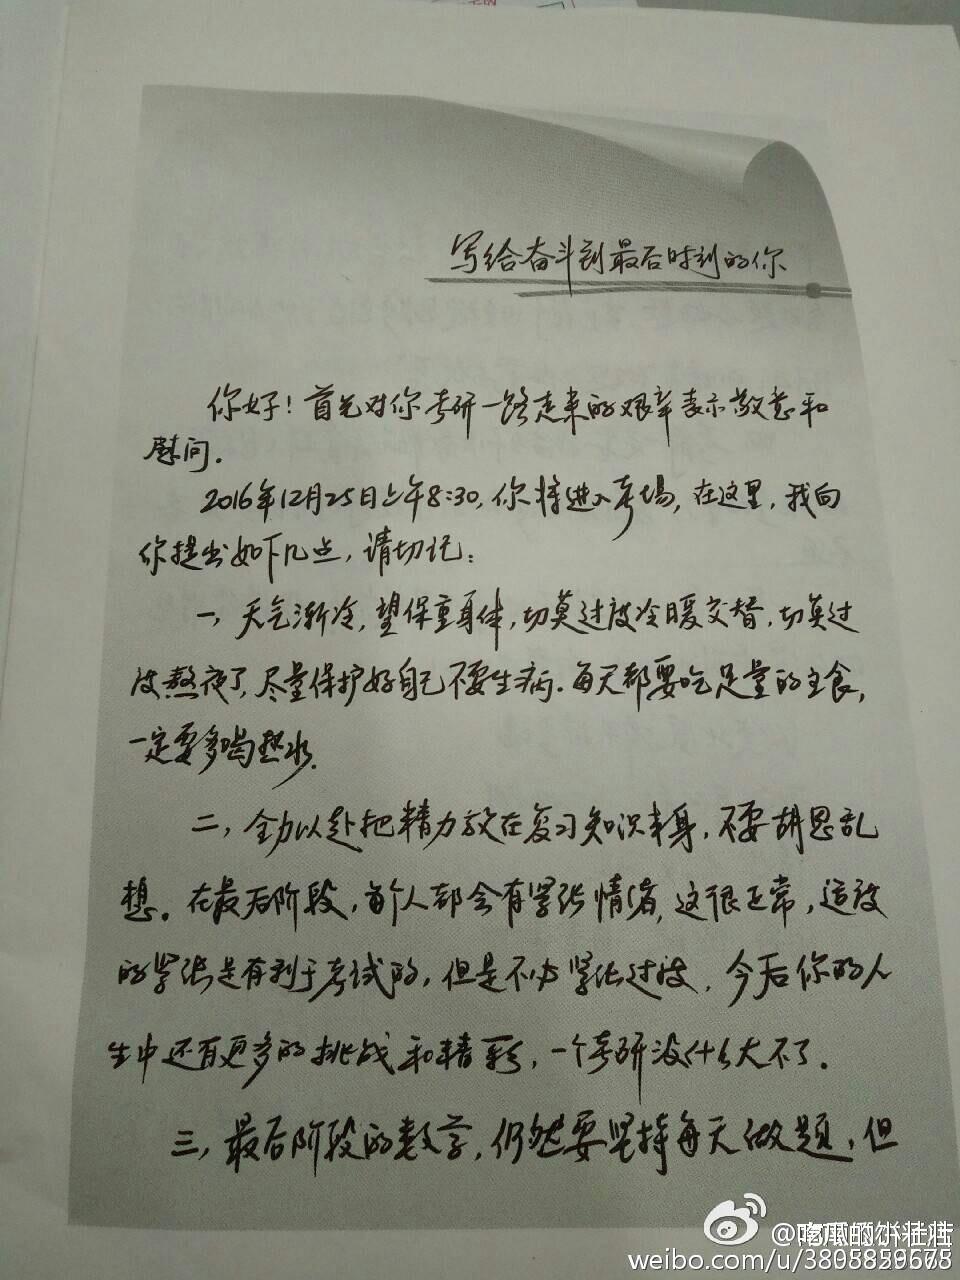 写给奋斗到最后时刻的你
你好！首先对你考研一路走来的艰辛表示敬意和
慰问.
2016年12月25日上午8:30,你将进入考场,在这里,我向
你提出如下几点,请切记:
一,天气渐冷,望保重身体,切莫过度冷暖交替,切莫过
度熬夜了,尽量保护好自己不要生病.每天都要吃足量的主食,
一定要多喝热水.
二,全力以赴把精力放在复习知识本身,不要胡思乱
想。在最后阶段,每个人都会有紧张情绪,这很正常,适度
的紧张是有利于考试的,但是不必紧张过度.今后你的人
生中还有更多的挑战和精彩,一个考研没什么大不了.
三,最后阶段的数学,仍然要坚持每天做题,但
weibo.com/u/3805829675